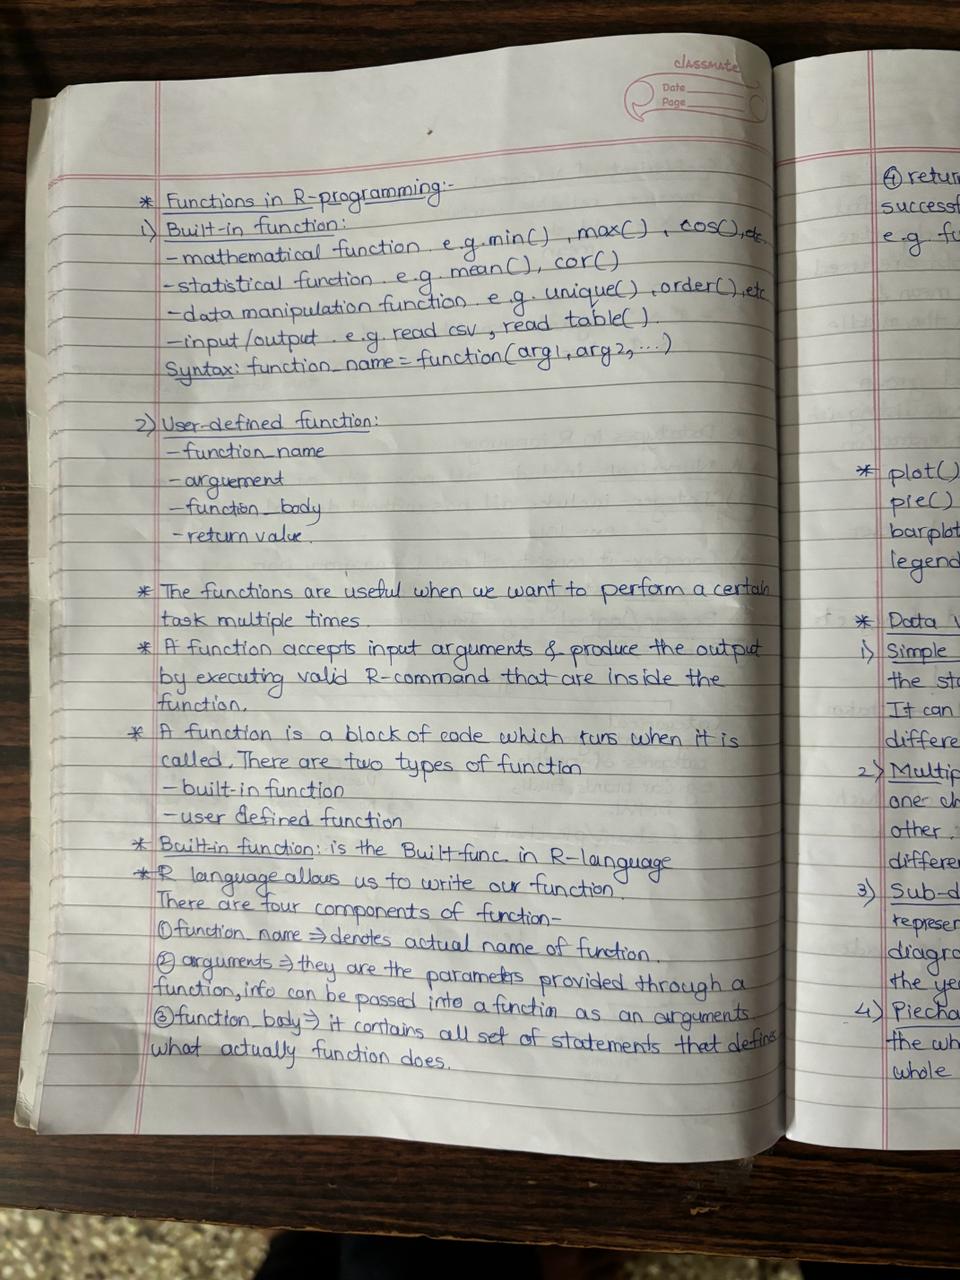 classmate
Date
Page
* Functions in R-programming:-
1) Built-in function:
-mathematical function. e.g. min(), max(), cos(), etc.
-statistical function. e.g. mean(), cor()
-data manipulation function. e.g. unique(), order(), etc
-input/output. e.g. read csv, read table().
Syntax: function_name = function(arg1, arg2, ...)
2) User-defined function:
-function_name
-arguement
-function_body
-return value.
* The functions are useful when we want to perform a certain
task multiple times.
* A function accepts input arguments & produce the output
by executing valid R-command that are inside the
function.
* A function is a block of code which runs when it is
called. There are two types of function
-built-in function
-user defined function
* Built-in function: is the Built func. in R-language
* R language allows us to write our function.
There are four components of function-
① function_name ⇒ denotes actual name of function.
② arguments ⇒ they are the parameters provided through a
function, info can be passed into a function as an arguments.
③ function_body ⇒ it contains all set of statements that defines
what actually function does.
④ return
success
e.g. fu
* plot()
pie()
barplot
legend
* Data
1) Simple
the sta
It can
differe
2) Multip
one ch
other.
differe
3) Sub-d
represer
diagra
the ye
4) Piecha
the wh
whole